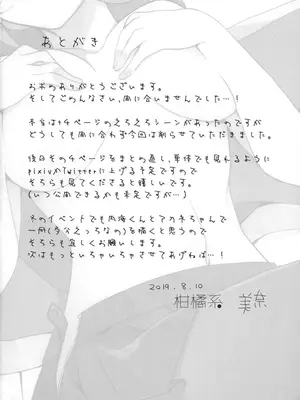 あとがき
お求めありがとうございます。
そしてごめんなさい、間に合いませんでした…!
本当は+4ページのえちえちシーンがあったのですが
どうしても間に合わず今回は削らせていただきました。
後日その4ページをまとめ直し、単体でも見れるように
pixivかTwitterに上げる予定ですので
そちらも見てくださると嬉しいです。
(いつ公開できるかも未定ですが…)
次のイベントでも内海くんとアカネちゃんで
一冊(多分えっちなの)を描くと思うので
そちらも宜しくお願いします。
次はもっといちゃいちゃさせてあげねば…!
2019.8.10
柑橘系 美奈